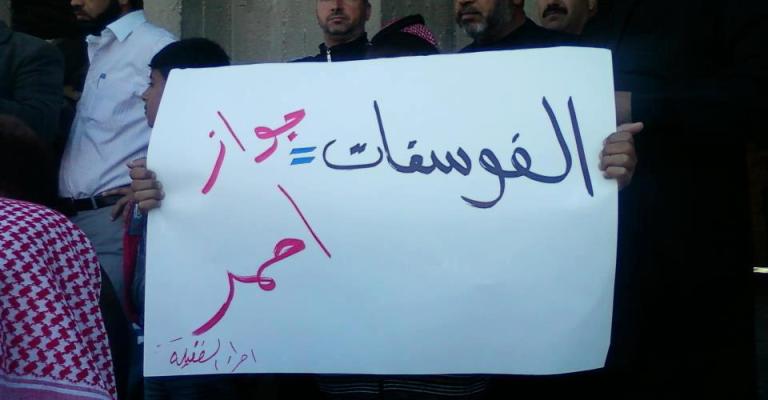 الفوسفات = جواز
احمر
احرار الطفيلة